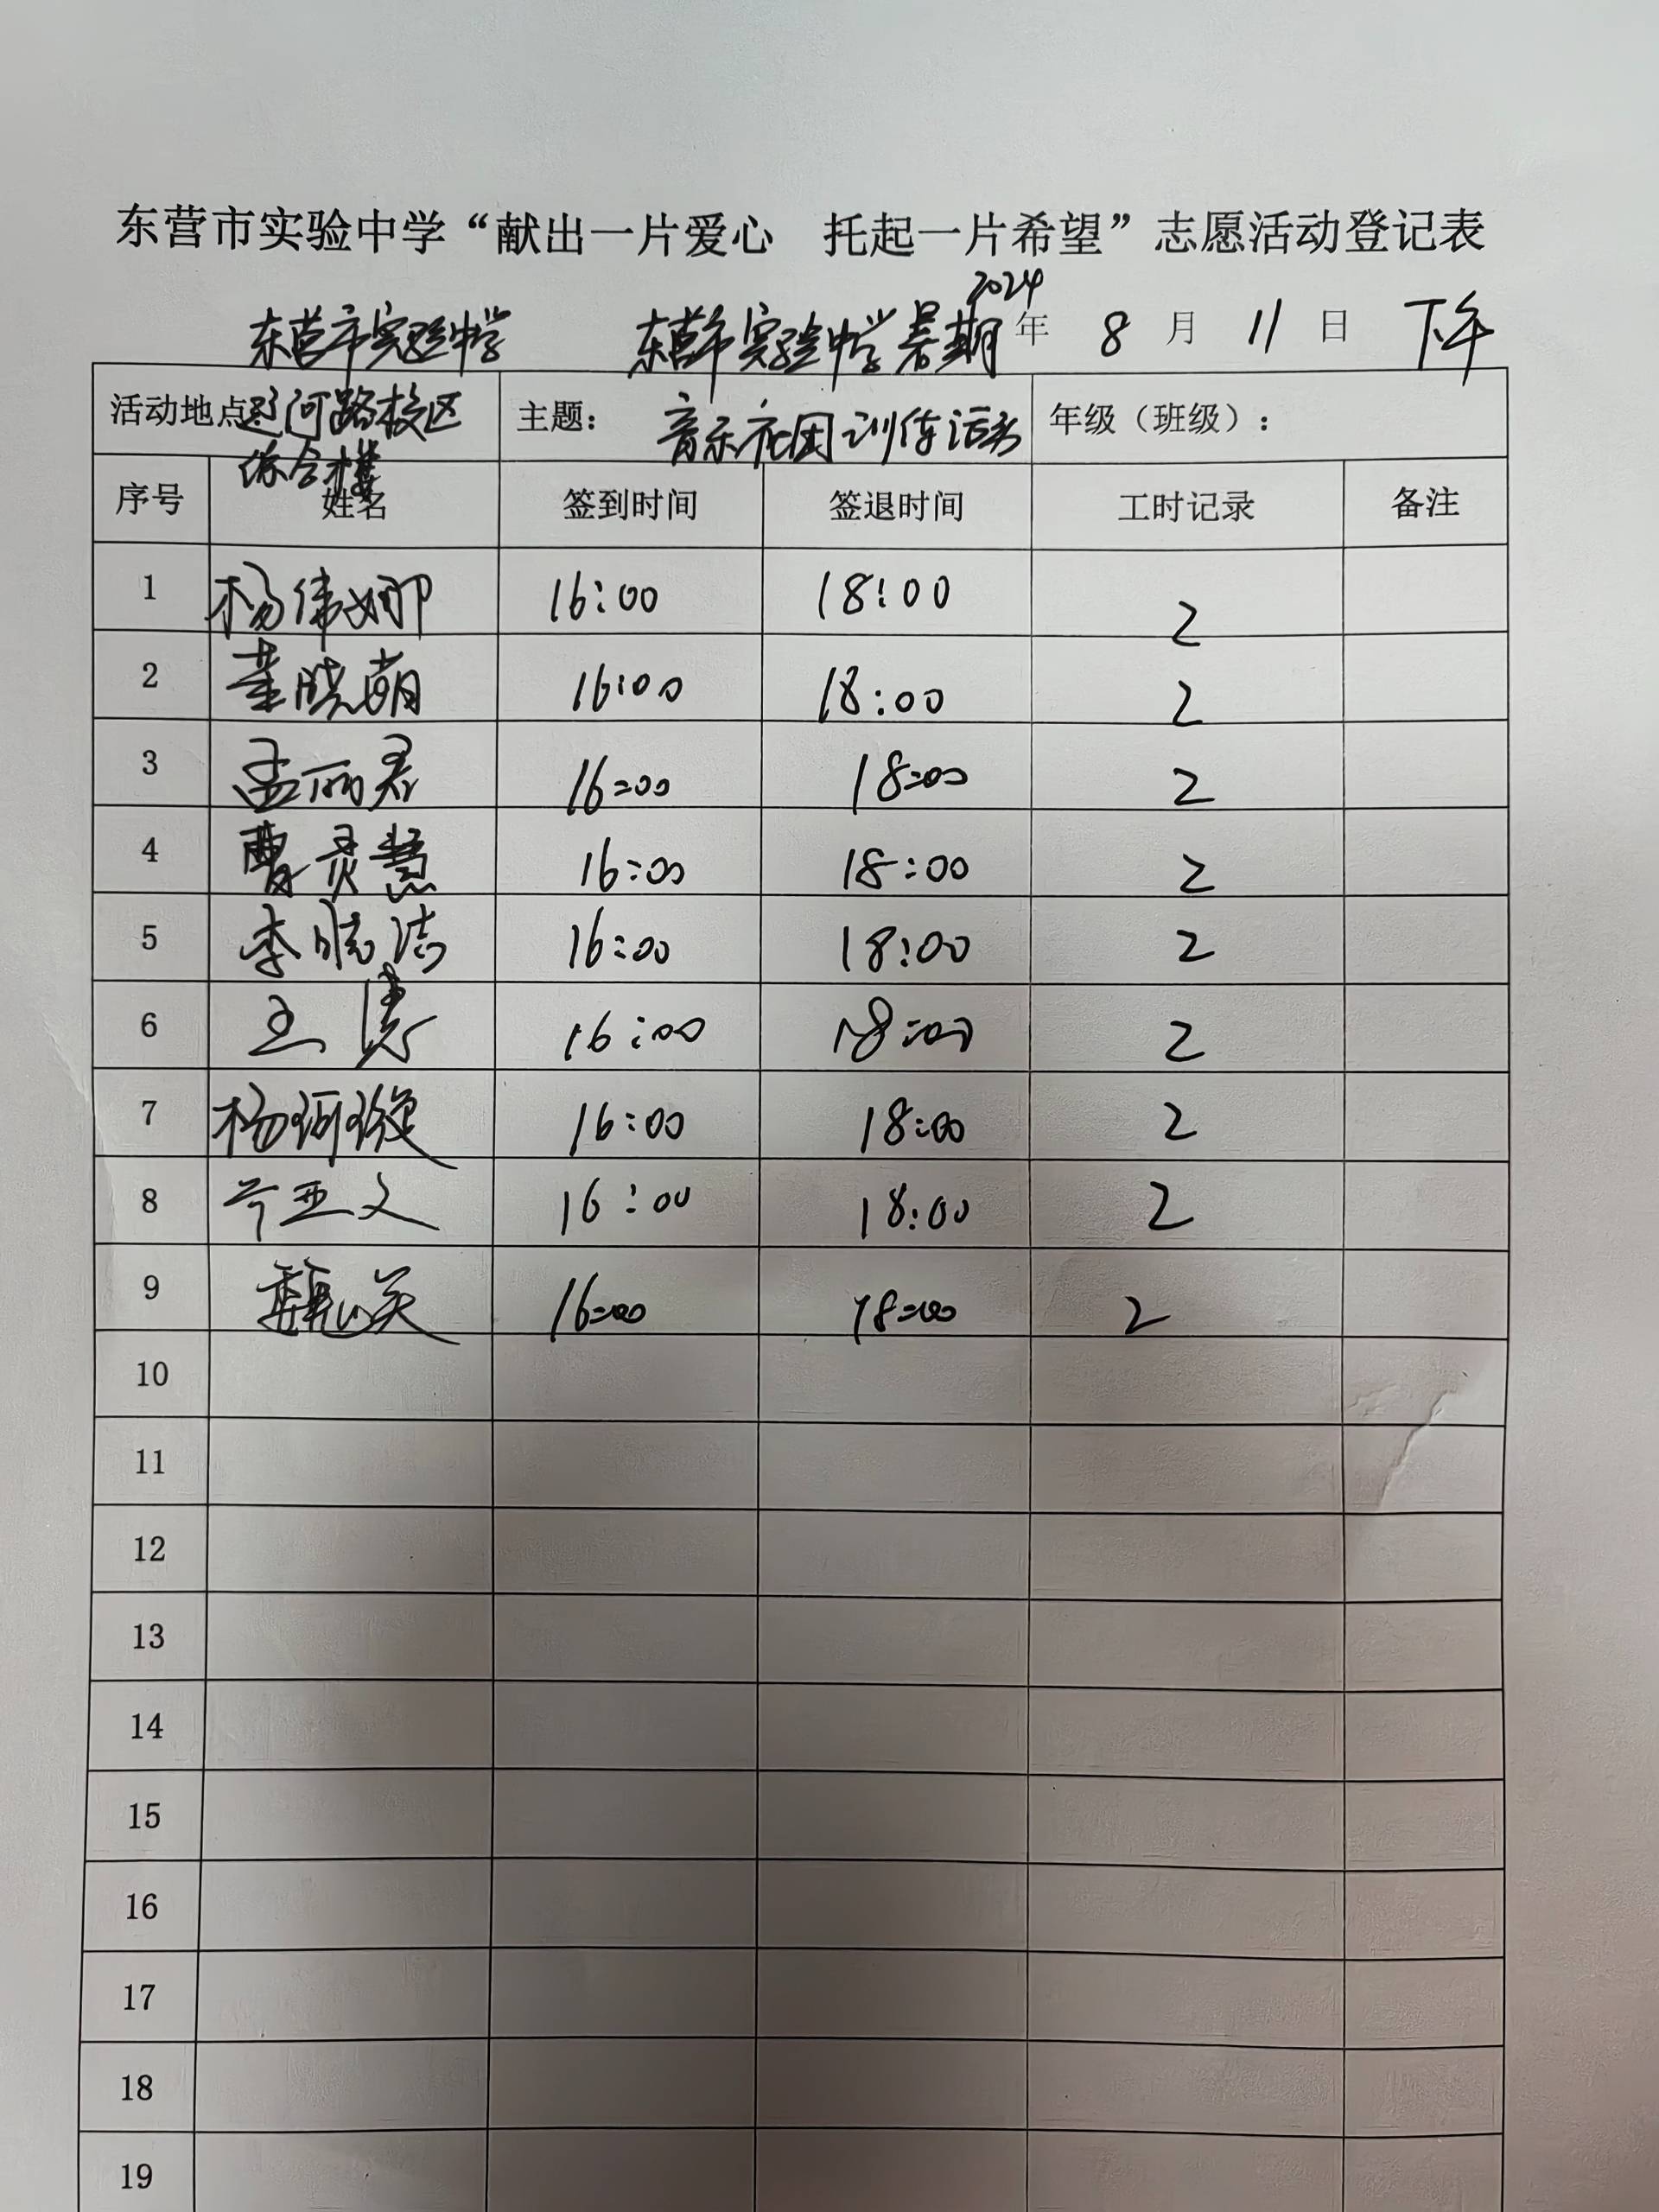 东营市实验中学“献出一片爱心 托起一片希望”志愿活动登记表
2024年 8 月 11 日 下午
活动地点: 东营市实验中学辽河路校区综合楼 主题: 东营市实验中学暑期音乐社团训练活动 年级（班级）:
序号 姓名 签到时间 签退时间 工时记录 备注
1 杨伟娜 16:00 18:00 2
2 董晓萌 16:00 18:00 2
3 孟丽君 16:00 18:00 2
4 曹灵慧 16:00 18:00 2
5 李晓洁 16:00 18:00 2
6 王涛 16:00 18:00 2
7 杨珂璇 16:00 18:00 2
8 亚文 16:00 18:00 2
9 魏关 16:00 18:00 2
10
11
12
13
14
15
16
17
18
19